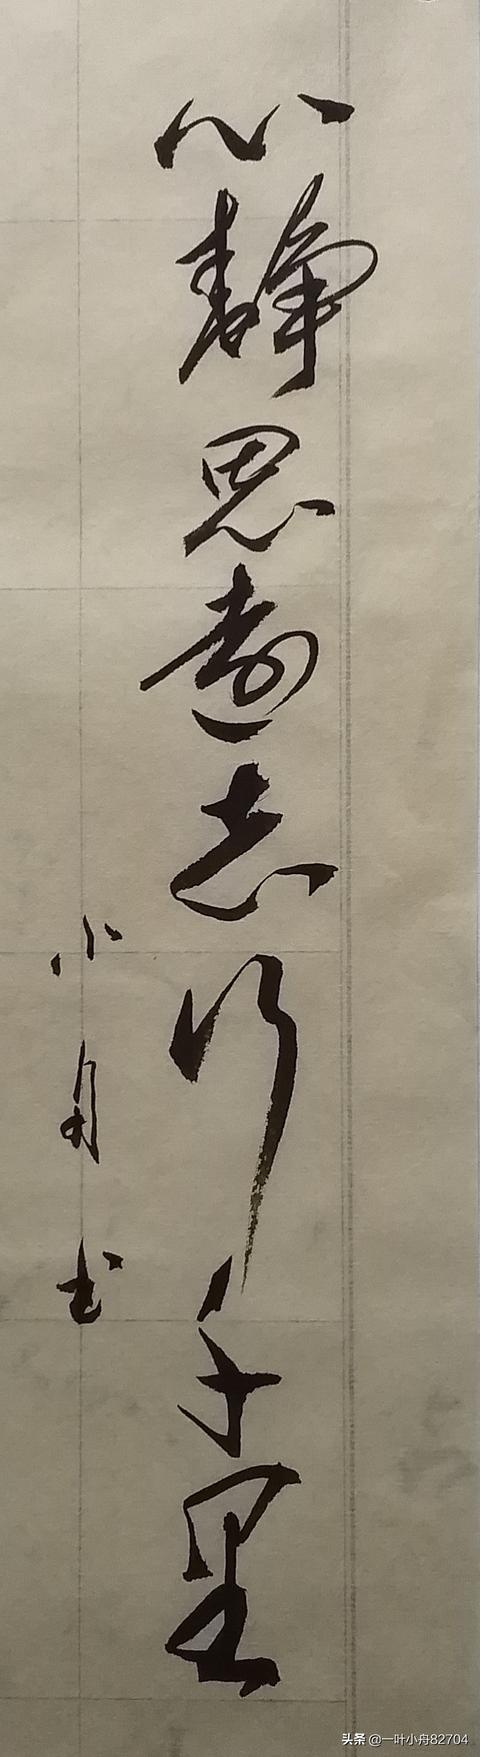 心静思远志行千里
小舟书
头条 @一叶小舟82704